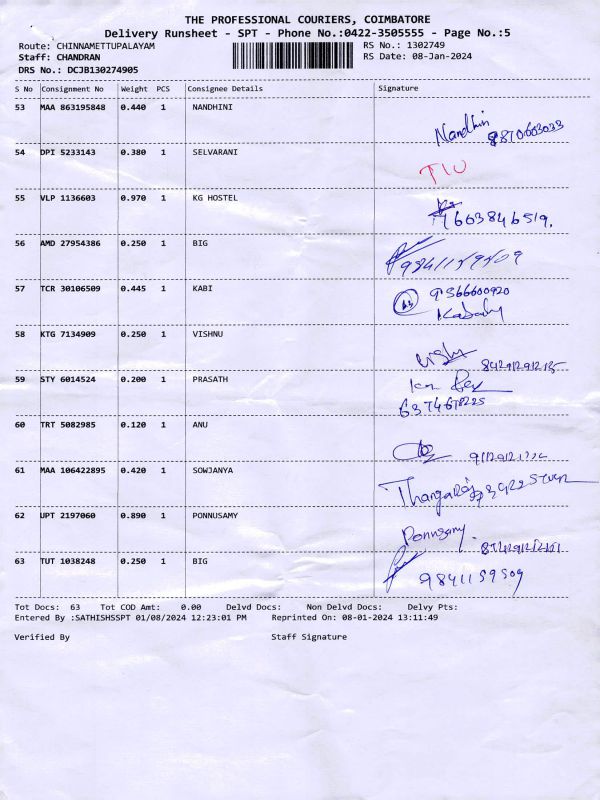 THE PROFESSIONAL COURIERS, COIMBATORE
Delivery Runsheet - SPT - Phone No.:0422-3505555 - Page No.:5
Route: CHINNAMETTUPALAYAM RS No.: 1302749
Staff: CHANDRAN RS Date: 08-Jan-2024
DRS No.: DCJB130274905
S No Consignment No Weight PCS Consignee Details Signature
53 MAA 863195848 0.440 1 NANDHINI
Nandhini
54 DPI 5233143 0.380 1 SELVARANI
55 VLP 1136603 0.970 1 KG HOSTEL
7603846519.
56 AMD 27954386 0.250 1 BIG
57 TCR 30106509 0.445 1 KABI
9566600920
58 KTG 7134909 0.250 1 VISHNU
59 STY 6014524 0.200 1 PRASATH
60 TRT 5082985 0.120 1 ANU
61 MAA 106422895 0.420 1 SOWJANYA
62 UPT 2197060 0.890 1 PONNUSAMY
Ponnusamy
63 TUT 1038248 0.250 1 BIG
9841159509
Tot Docs: 63 Tot COD Amt: 0.00 Delvd Docs: Non Delvd Docs: Delvy Pts:
Entered By :SATHISHSSPT 01/08/2024 12:23:01 PM Reprinted On: 08-01-2024 13:11:49
Verified By Staff Signature